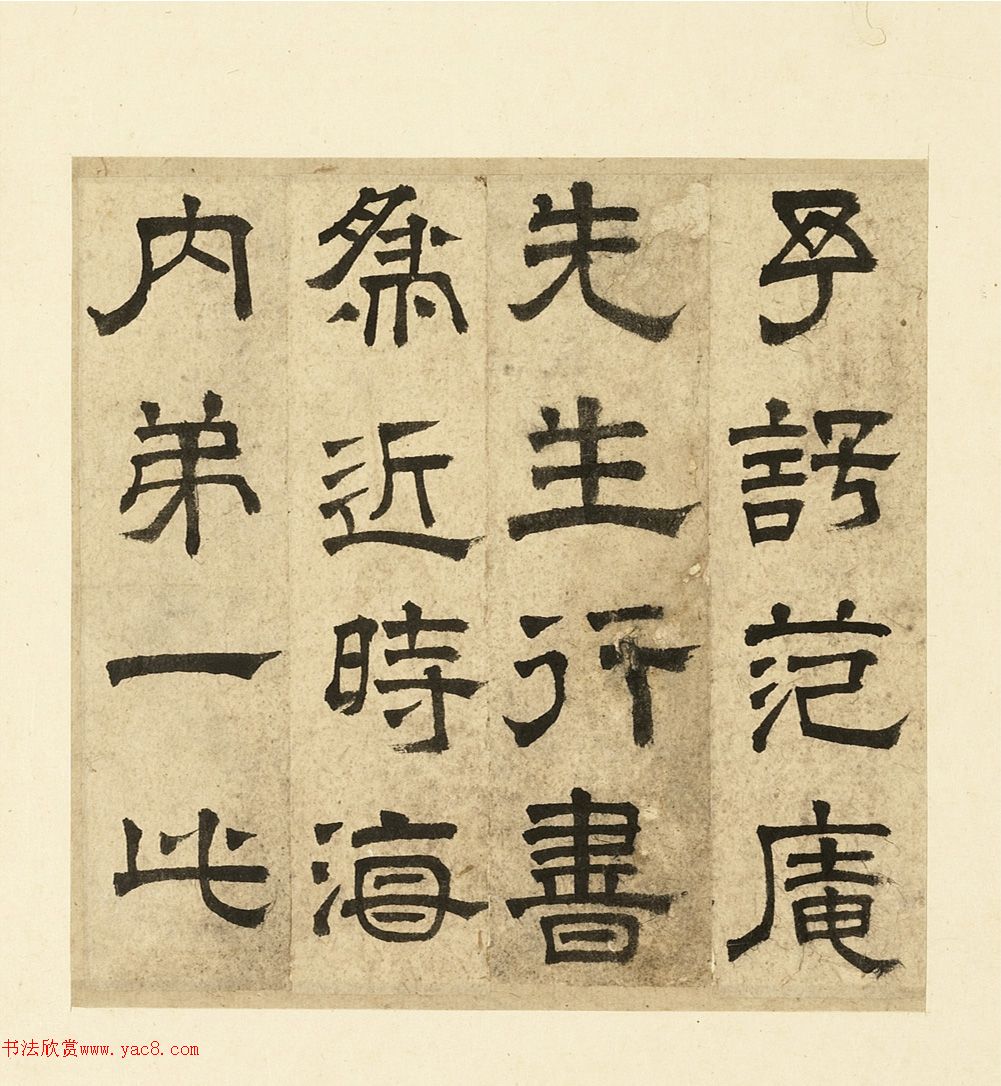 予范庵
先生行書
爲近時海
内弟一此
书法欣赏www.yac8.com